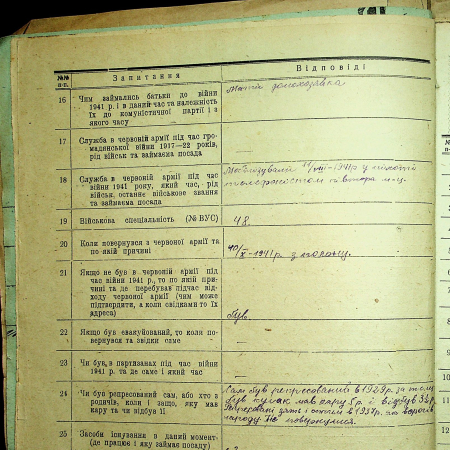 №№ п-п. Запитання Відповіді
16 Чим займались батьки до війни
1941 р. і в даний час та належність
їх до комуністичної партії і з
якого часу
Мати домохозяйка
17 Служба в червоній армії під час гро-
мадянської війни 1917—22 років,
рід військ та займаєма посада
18 Служба в червоній армії під час
війни 1941 року, який час, рід
військ, останнє військове звання
та займаєма посада
1941р. у
19 Військова спеціяльність (№ ВУС) 48.
20 Коли повернувся з червоної армії та
по якій причині
X-1941р. з полону.
21 Якщо не був в червоній армії під
час війни 1941 р., то по якій при-
чині та де перебував підчас від-
ходу червоної армії (чим може
підтвердити, а коли свідками то їх
адреса)
був
22 Якщо був евакуйований, то коли по-
вернувся та звідки саме
23 Чи був в партизанах під час війни
1941 р. та де саме і який час
24 Чи був репресований сам, або хто з
родичів, коли і защо, яку має
кару та чи відбув її
Сам був репресований в 1929р. за те що
був кулак мав кару 5р. і відбув
в 1937р. по
народу не повернулися.
25 Засоби існування в даний момент
(де працює і яку займає посаду)